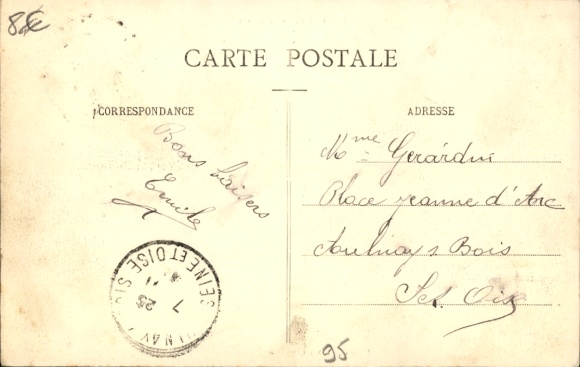 8€
CARTE POSTALE
CORRESPONDANCE
ADRESSE
Bons baisers
Emile
Mme Gerardin
Place Jeanne d'Arc
Aulnay s Bois
S et Oise
SEINE ET OISE
7
23
95